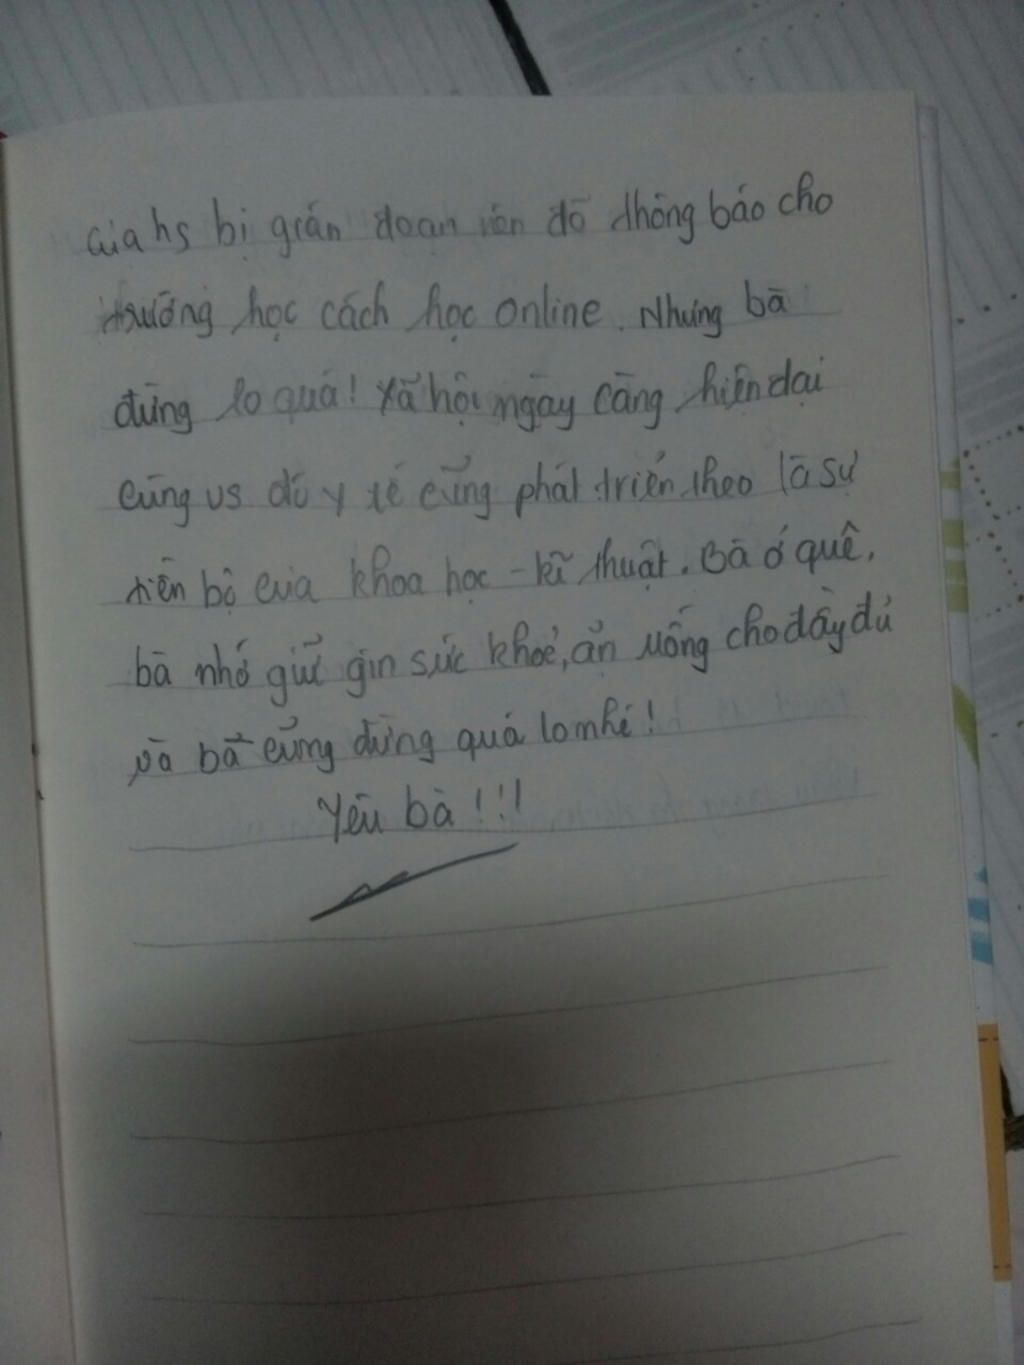 của hs bị gián đoạn nên đã thông báo cho
trường học cách học online. Nhưng bà
đừng lo quá! Xã hội ngày càng hiện đại
cùng vs đó y tế cũng phát triển, theo là sự
tiến bộ của khoa học - kĩ thuật. Bà ở quê,
bà nhớ giữ gìn sức khoẻ, ăn uống cho đầy đủ
và bà cũng đừng quá lo nhé!
Yêu bà!!!